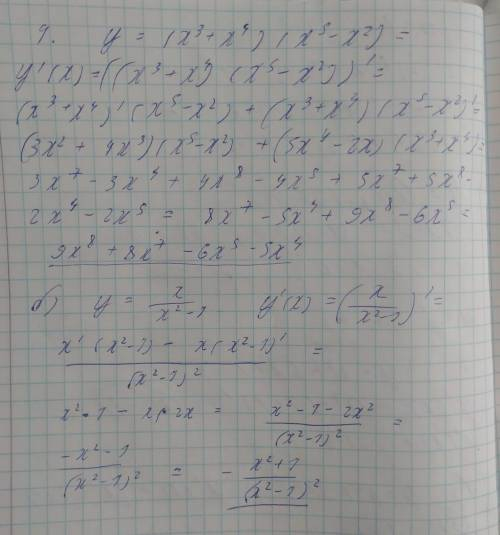 9. y = (x³ + x⁴) (x⁵ - x²) =
y'(x) = ((x³ + x⁴) (x⁵ - x²))' =
(x³ + x⁴)' (x⁵ - x²) + (x³ + x⁴) (x⁵ - x²)' =
(3x² + 4x³) (x⁵ - x²) + (5x⁴ - 2x) (x³ + x⁴) =
3x⁷ - 3x⁴ + 4x⁸ - 4x⁵ + 5x⁷ + 5x⁸ -
2x⁴ - 2x⁵ = 8x⁷ - 5x⁴ + 9x⁸ - 6x⁵ =
9x⁸ + 8x⁷ - 6x⁵ - 5x⁴
б) y = x/(x² - 1) y'(x) = (x/(x² - 1))' =
(x' (x² - 1) - x(x² - 1)')/(x² - 1)² =
x² - 1 - x · 2x = (x² - 1 - 2x²)/(x² - 1)² =
(-x² - 1)/(x² - 1)² = - (x² + 1)/(x² - 1)²